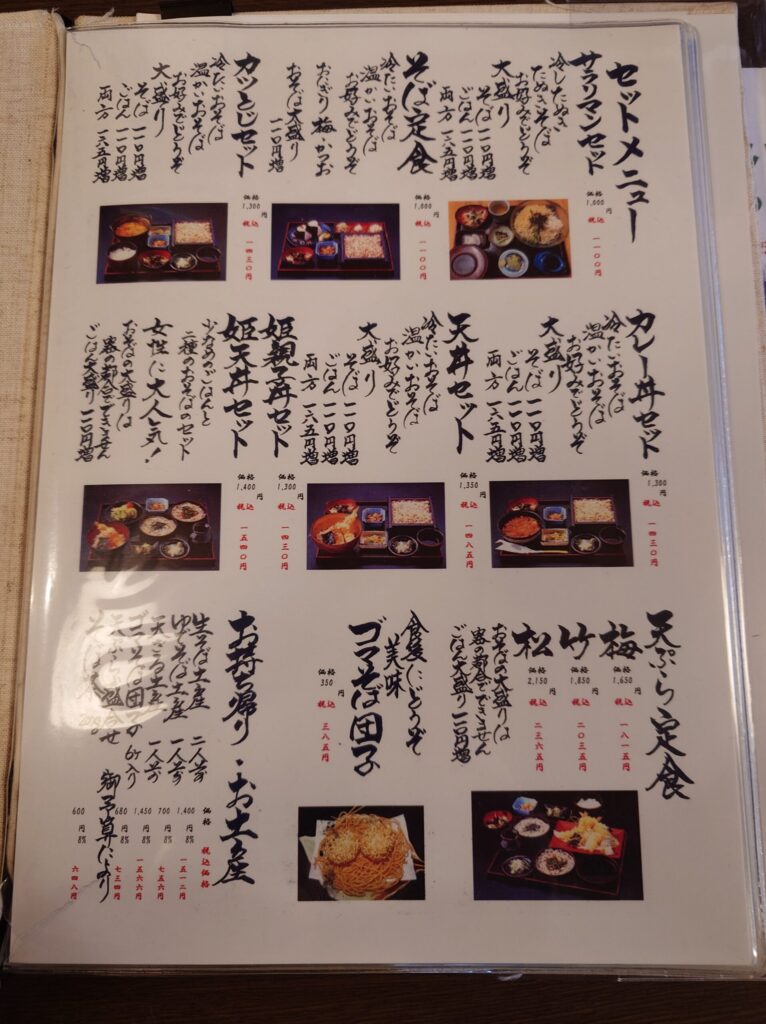 セットメニュー
サラリマンセット
冷したぬき
たぬきそば
お好みでどうぞ
大盛り
そば 一一〇円増
ごはん 一一〇円増
両方 一六五円増
価格
1,000円
税込
一一〇〇円
そば定食
冷たいおそば
温かいおそば
お好みでどうぞ
おにぎり 梅 かつお
おそば大盛り
一一〇円増
価格
1,000円
税込
一一〇〇円
カツとじセット
冷たいおそば
温かいおそば
お好みでどうぞ
大盛り
そば 一一〇円増
ごはん 一一〇円増
両方 一六五円増
価格
1,300円
税込
一四三〇円
カレー丼セット
冷たいおそば
温かいおそば
お好みでどうぞ
大盛り
そば 一一〇円増
ごはん 一一〇円増
両方 一六五円増
価格
1,300円
税込
一四三〇円
天丼セット
冷たいおそば
温かいおそば
お好みでどうぞ
大盛り
そば 一一〇円増
ごはん 一一〇円増
両方 一六五円増
価格
1,350円
税込
一四八五円
姫親子丼セット
姫天丼セット
少なめのごはんと
二種のおそばのセット
女性に大人気!
おそばの大盛りは
器の都合でできません
ごはん大盛り 一一〇円増
価格
1,300円
税込
一四三〇円
価格
1,400円
税込
一五四〇円
天ぷら定食
梅
価格
1,650円
税込
一八一五円
竹
価格
1,850円
税込
二〇三五円
松
価格
2,150円
税込
二三六五円
おそばの大盛りは
器の都合でできません
ごはん大盛り 一一〇円増
食後にどうぞ
美味
ゴマそば団子
価格
350円
税込
三八五円
お持ち帰り・お土産
価格
税込価格
生そば土産 二人前
1,400円
8%
一五一二円
ゆでそば土産 一人前
700円
8%
七五六円
天ざる土産 一人前
1,450円
8%
一五六六円
ゴマそば団子の 6ケ入り
680円
8%
七三四円
御予算により
600円
8%
六四八円